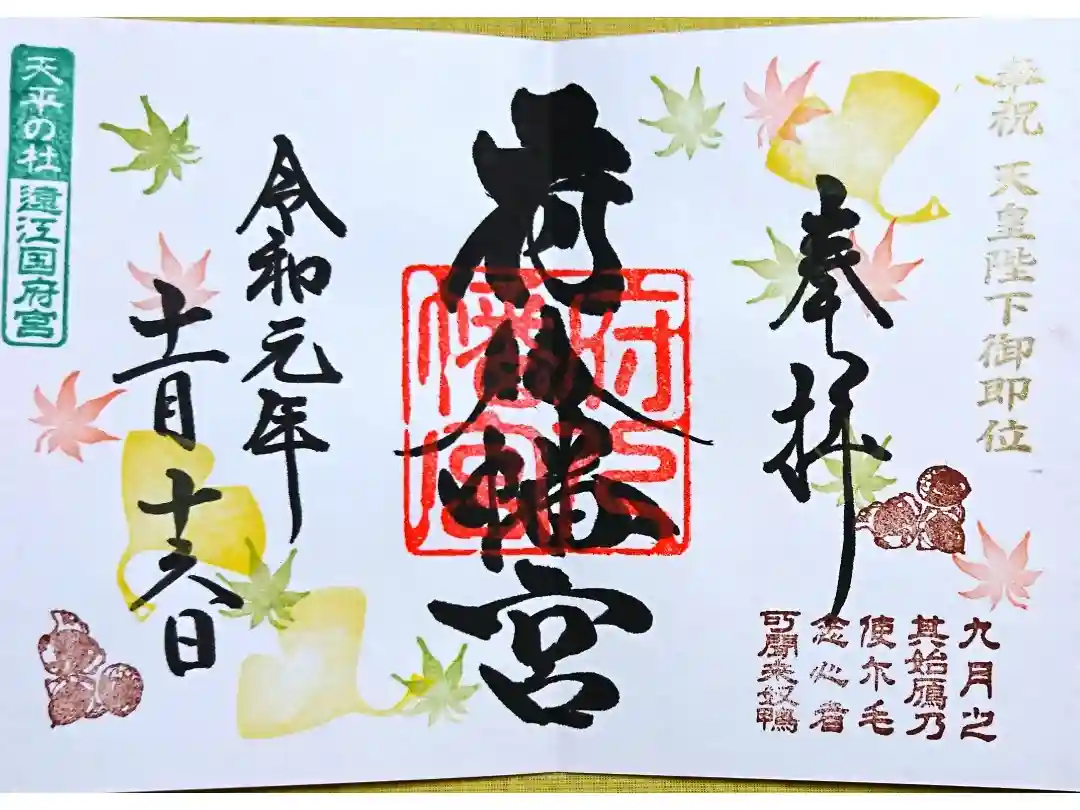 奉祝 天皇陛下御即位
奉拝
九月之
其始鴈乃
使尓毛
念心者
可聞来奴鴨
府八幡宮
府八
幡宮
令和元年
十一月十六日
天平の杜 遠江国府宮